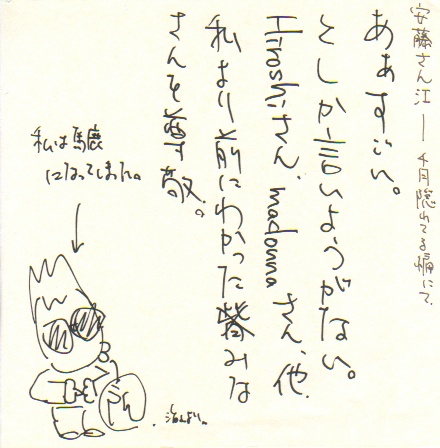 安藤さん江 — 4月隠れてる編にて
あぁすごい。
としか言いようがない。
Hiroshiさん、madonnaさん、他、
私より前にわかったみな
さんを尊敬。
私は馬鹿
になってしまいました。
治より。